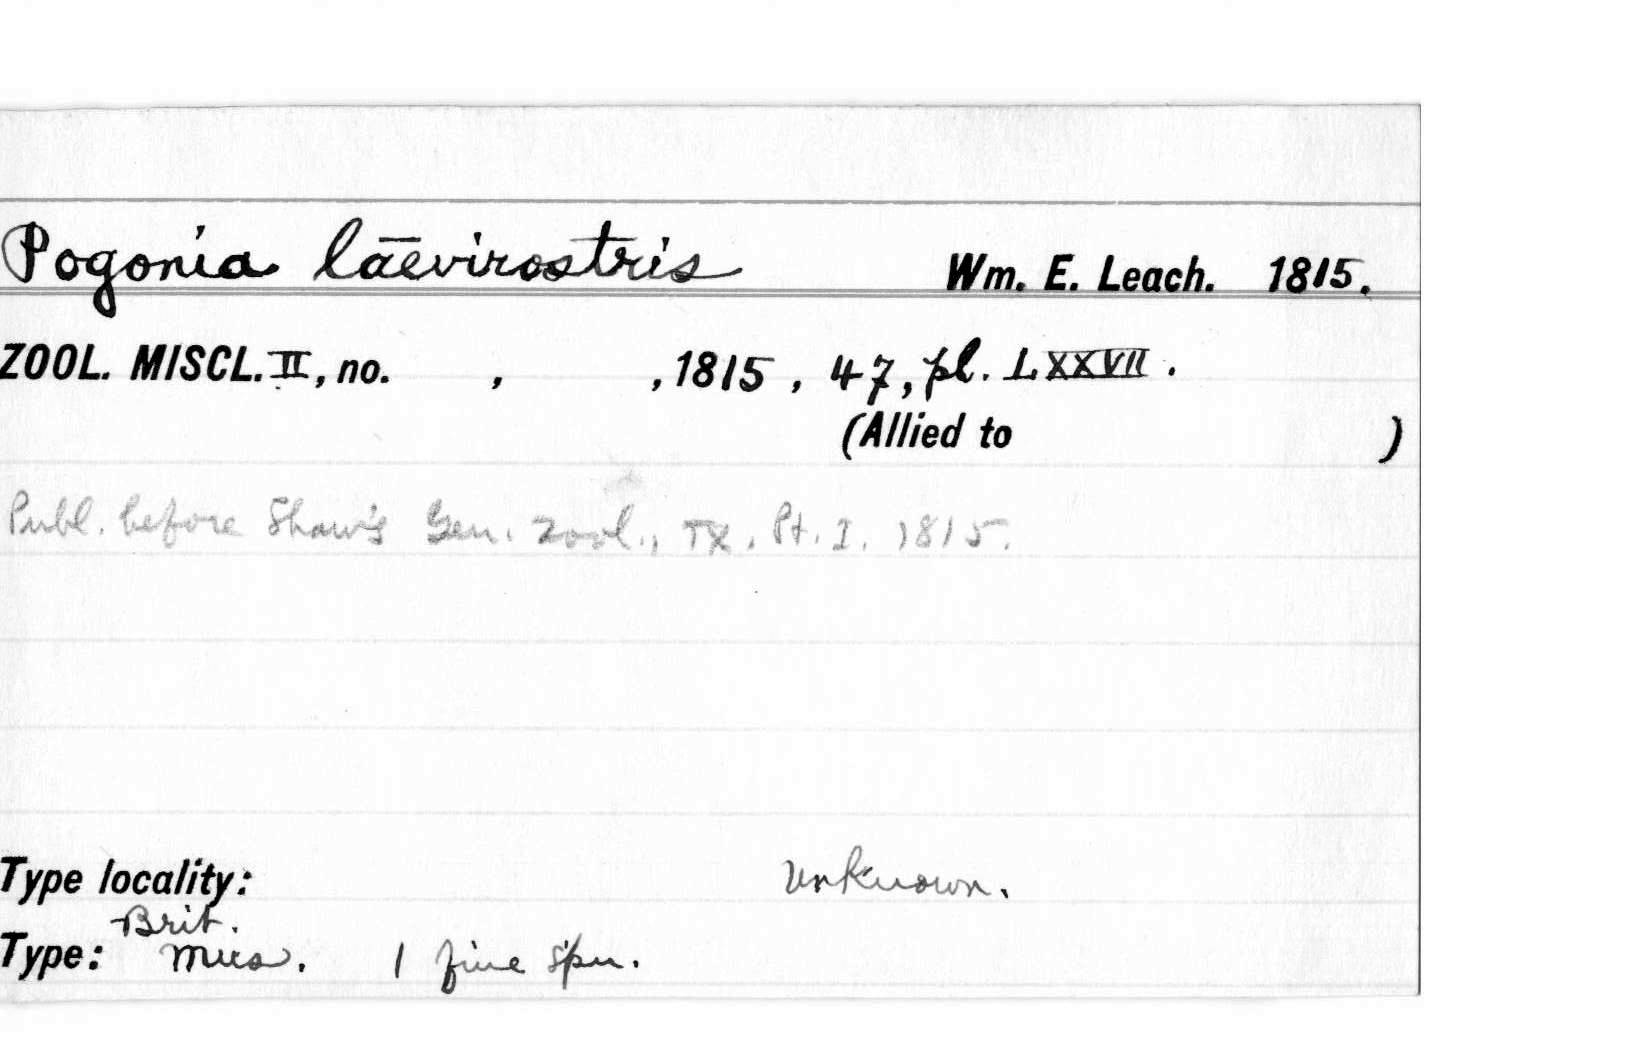 Pogonia laevirostris Wm. E. Leach. 1815.
ZOOL. MISCL. II, no. , , 1815, 47, pl. LXXVII.
(Allied to )
Publ. before Shaw's Gen. Zool., IX, Pt. I. 1815.
Type locality: Unknown.
Brit.
Type: Mus. 1 fine spn.